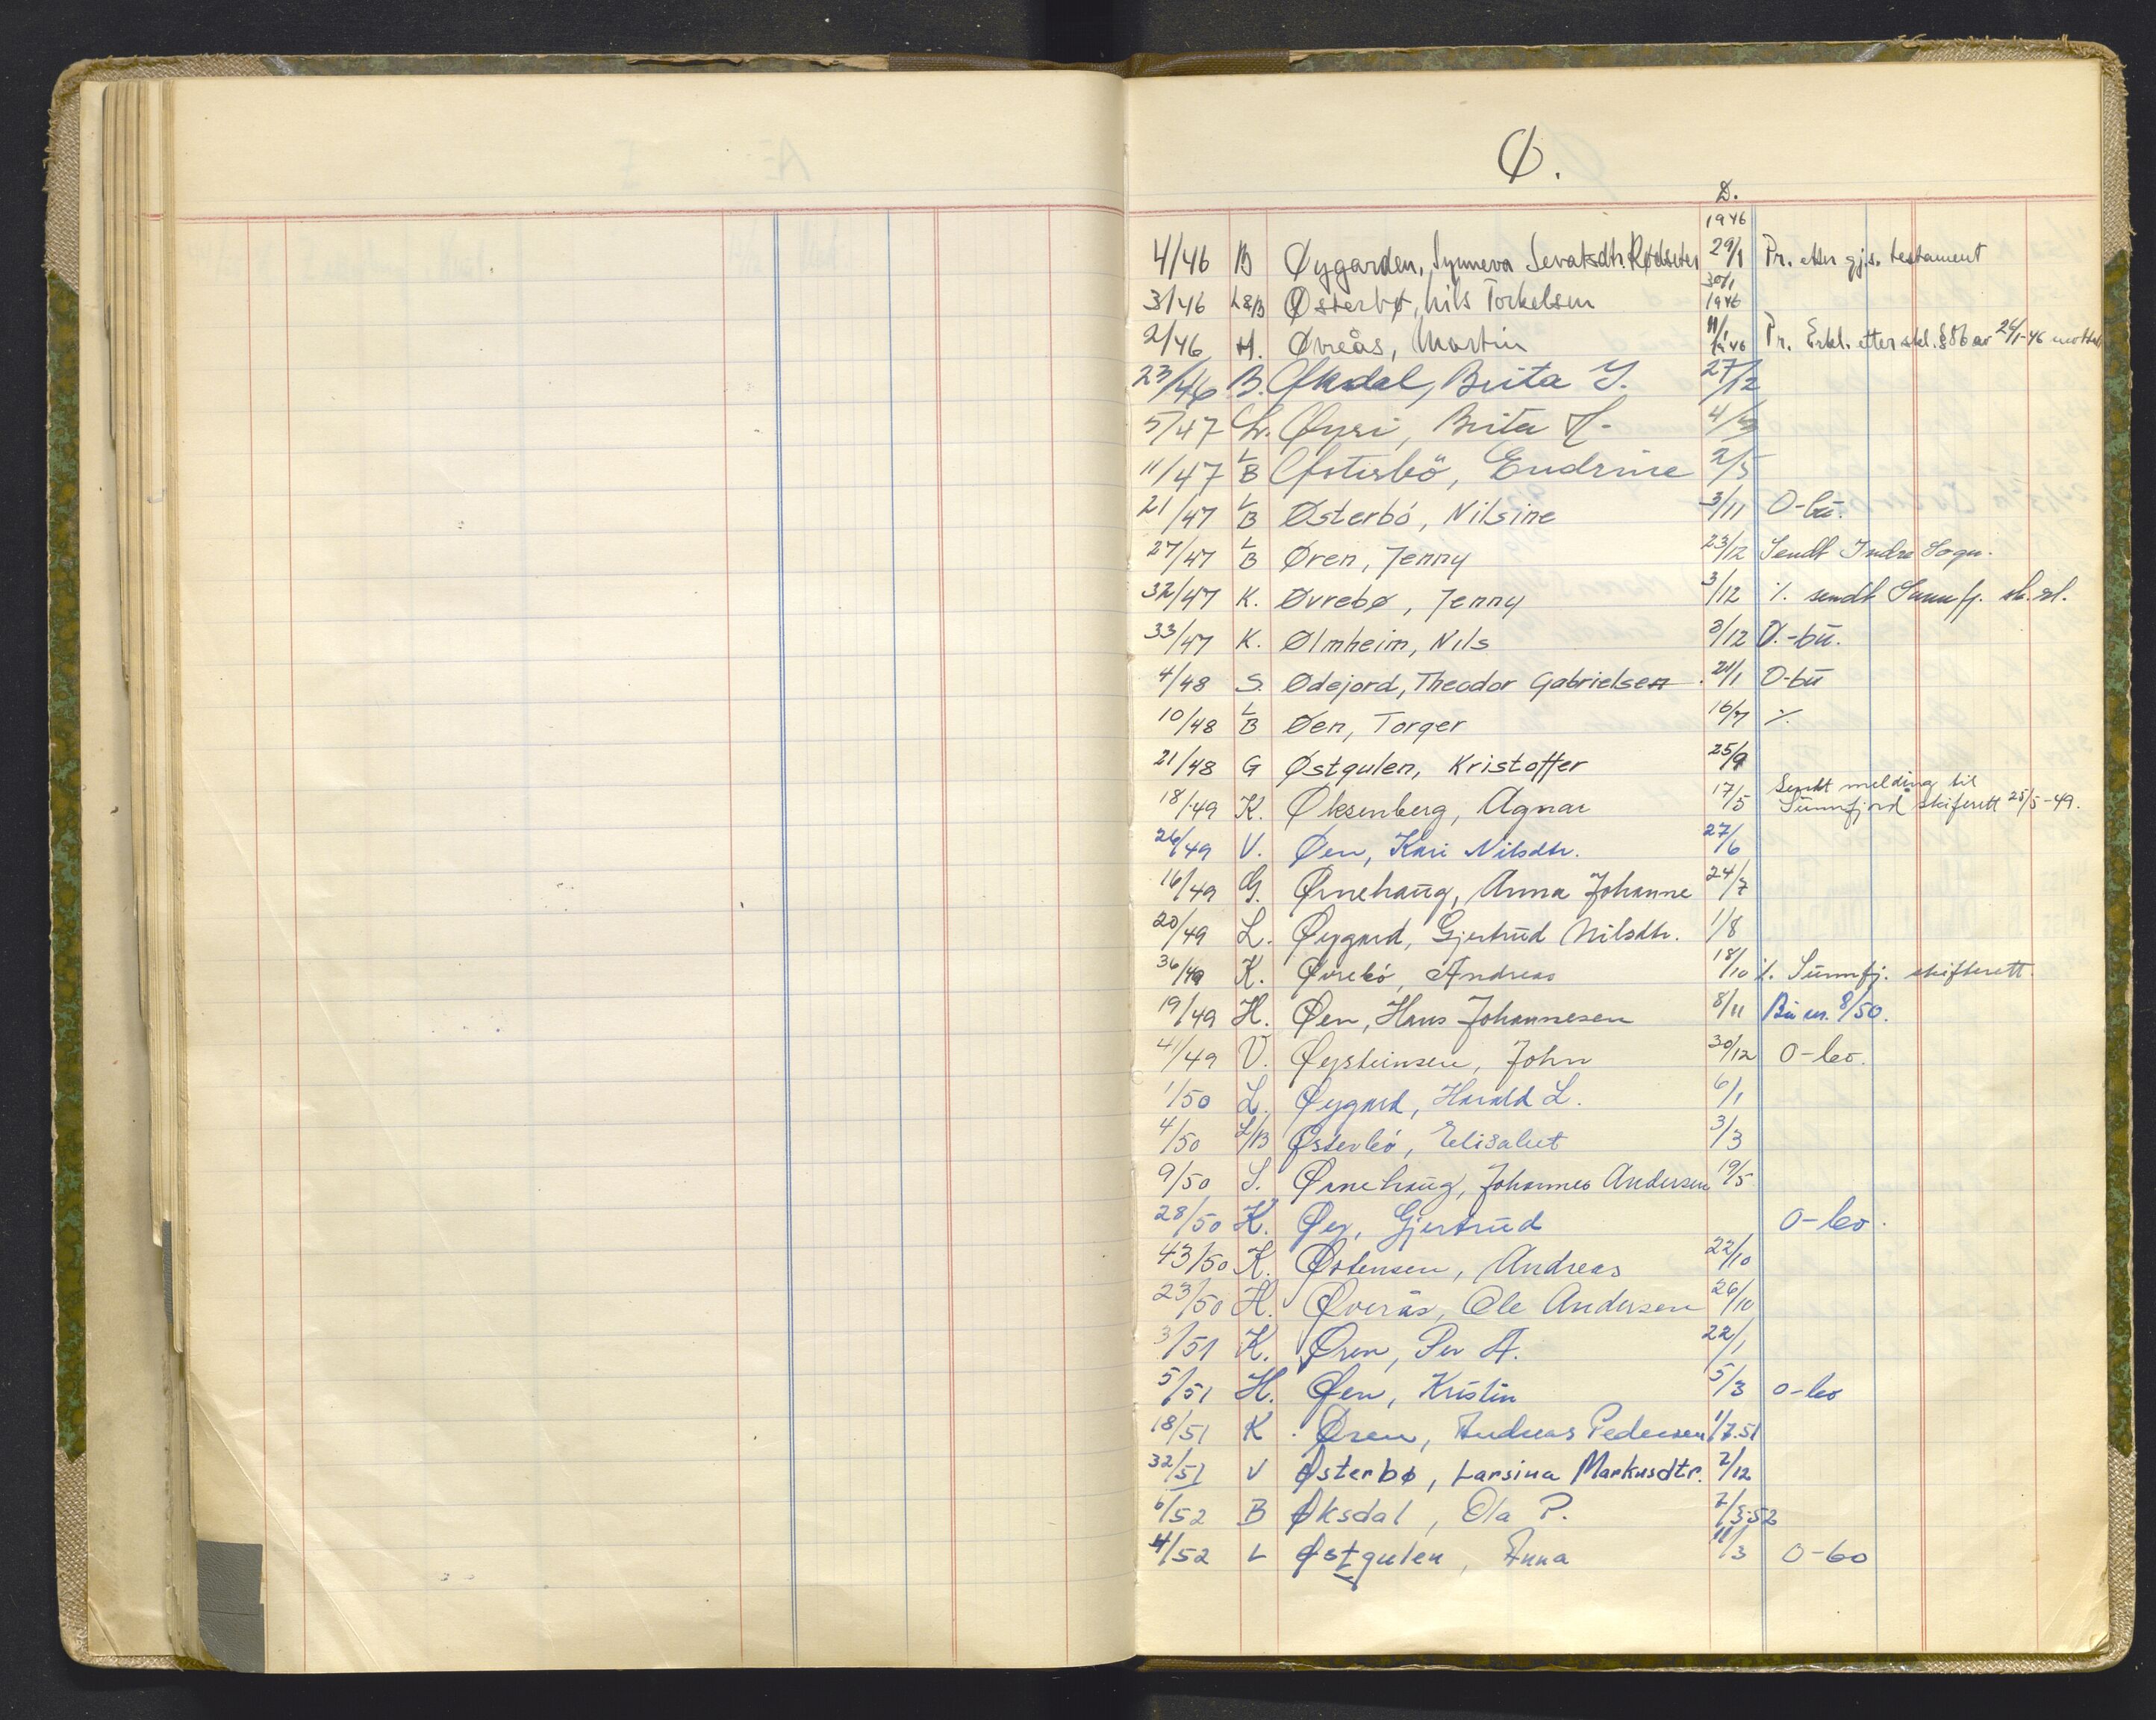 Ø.
D.
1946
4/46 B Øygarden, Synneva Sevatsdtr. Rødseter 29/1 Pr. etter gj.s. testament
3/46 L&B Østerbø, Nils Torkelsen 30/1 1946
2/46 H. Øvreås, Martin 11/1 1946 Pr. Erkl. etter skl. § 86 av 26/1-46 mottatt
23/46 B. Øksdal, Brita J. 27/12
5/47 L. Øyri, Brita A. 4/3
11/47 L/B Østerbö, Endrine 2/5
21/47 L/B Østerbó, Nilsine 3/11 O-bu.
27/47 L/B Øren, Jenny 23/12 Sendt Indre Sogn.
32/47 K. Øvrebø, Jenny 3/12 ./. sendt Sunnfj. sk.rl.
33/47 K. Ølmheim, Nils 3/12 O.-bu.
4/48 S. Ødejord, Theodor Gabrielsen 24/1 O-bu
10/48 L/B Øen, Torger 16/7 ./.
21/48 G Østgulen, Kristoffer 25/9
18/49 K. Øksenberg, Agnar 17/5 Sendt melding til
Sunnfjord skiferett 25/5-49.
26/49 V. Øen, Kari Nilsdtr. 27/6
16/49 G. Ørnehaug, Anna Johanne 24/7
20/49 L. Øygard, Gjertrud Nilsdtr. 1/8
36/49 K. Øvrebó, Andreas 18/10 ./. Sunnfj. skifterett.
19/49 H. Øen, Hans Johannesen 8/11 Bu nr. 8/50.
41/49 V. Øysteinsen, John 30/12 O-bo.
1/50 L. Øygard, Harald L. 6/1
4/50 L/B Østerbó, Elisabet 3/3
9/50 S. Ørnehaug, Johannes Andersen 19/5
28/50 K. Øy, Gjertrud O-bo.
43/50 K. Østensen, Andreas 22/10
23/50 H. Øverås, Ole Andersen 26/10
3/51 K. Øren, Per A. 22/1
5/51 H. Øen, Kristin 5/3 O-bo
18/51 K. Øren, Andreas Pedersen 1/7.51
32/51 V Østerbø, Larsina Markusdtr. 2/12
6/52 B Øksdal, Ola P. 7/3.52
4/52 L Østgulen, Anna 11/3 O-bo